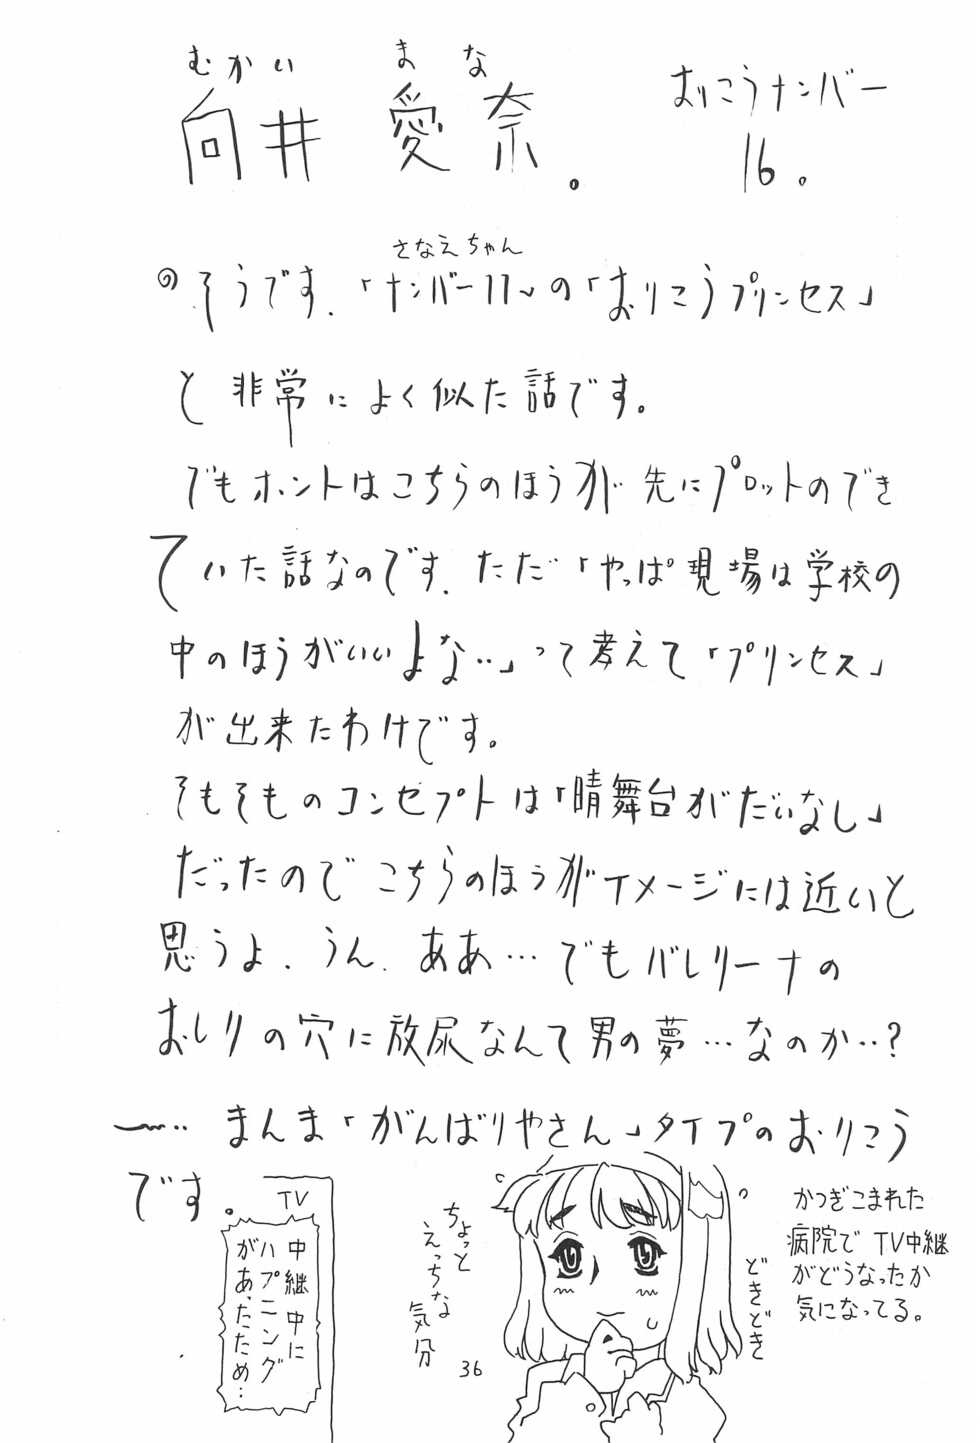 むかい まな
向井 愛奈。
おりこうナンバー
16。
そうです.「ナンバー11」の「おりこうプリンセス」
さなえちゃん
と非常によく似た話です。
でもホントはこちらのほうが先にプロットのでき
ていた話なのです.ただ「やっぱ現場は学校の
中のほうがいいよな‥」って考えて「プリンセス」
が出来たわけです。
そもそものコンセプトは「晴舞台がだいなし」
だったのでこちらのほうがイメージには近いと
思うよ.うん.
まんま「がんばりやさん」タイプのおりこう
です。
TV
中継中に
ハプニング
があったため…
36
かつぎこまれた
病院でTV中継
がどうなったか
気になってる。